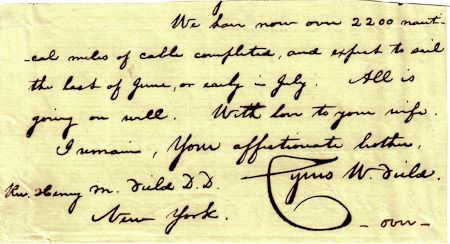 We have now over 2200 nauti-
-cal miles of cable completed, and expect to sail
the last of June, or early in July. All is
going on well. With love to your wife.
I remain, Your affectionate brother,
Cyrus W. Field.
Rev. Henry M. Field D.D.
New York.
- over -